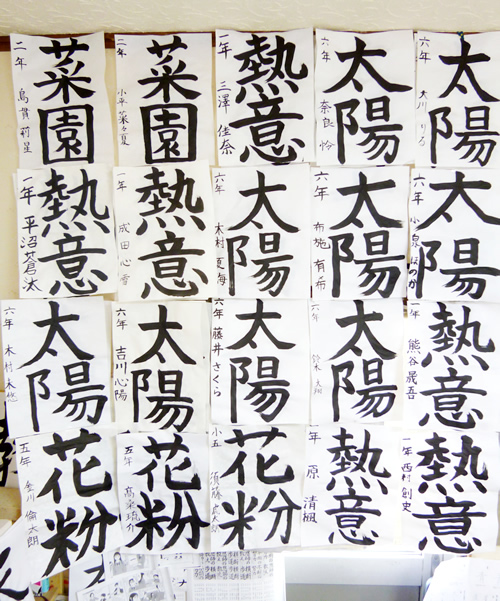 菜園
二年 鳥貫 莉星
菜園
二年 小平 菜々夏
熱意
一年 三澤 佳奈
太陽
六年 奈良 怜
太陽
六年 大川
熱意
一年 平沼蒼汰
熱意
一年 成田 心
太陽
六年 木村 夏海
太陽
六年 布施 有希
太陽
六年 小泉 ほのか
太陽
六年 木村 未悠
太陽
六年 吉川 心陽
太陽
六年 藤井 さくら
太陽
六年 鈴木
熱意
一年 熊谷 晟吾
花粉
五年 倫太朗
花粉
五年 琉介
花粉
小五 須藤
熱意
年 原 清楓
熱意
一年 西村 創史